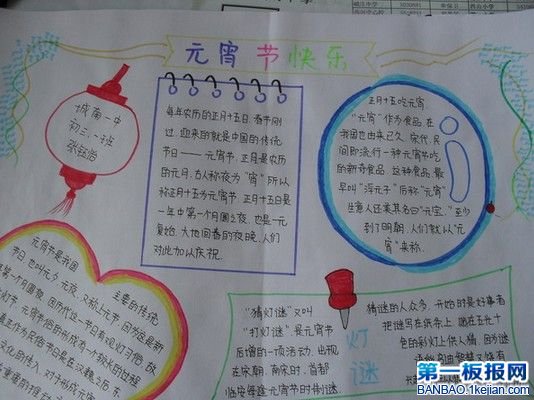 元宵节快乐
城南一中
初三、一班
每年农历的正月十五日,春节刚
过,迎来的就是中国的传统
节日——元宵节。正月是农历
的元月,古人称夜为"宵",所以
称正月十五为元宵节。正月十五日是
一年中第一个月圆之夜,也是一元
复始,大地回春的夜晚,人们
对此加以庆祝。
正月十五吃元宵
"元宵"作为食品,在
我国也由来已久。宋代,民
间即流行一种元宵节吃
的新奇食品。这种食品,最
早叫"浮元子"后称"元宵"
生意人还美其名曰"元宝"。至少
到了明朝,人们就以"元
宵"来称
元宵节是我国
主要的传统
节日,也叫元夕、元夜,又称上元节,因为这是新
第一个月圆夜,因历代这一节日有观灯习俗,故
灯节。元宵节俗的形成有一个较长的过程
真正作为民俗节日是在汉魏之后。东
文化的传入,对于形成元宵
灯谜
"猜灯谜"又叫
"打灯谜"是元宵节
后增的一项活动,出现
在宋朝。南宋时,首都
临安每逢元宵节时制谜,
猜谜的人众多。开始时是好事者
把谜写在纸条上,贴在五光十
色的彩灯上供人猜。因为谜
第一板报网
BANBAO.1kejian.com